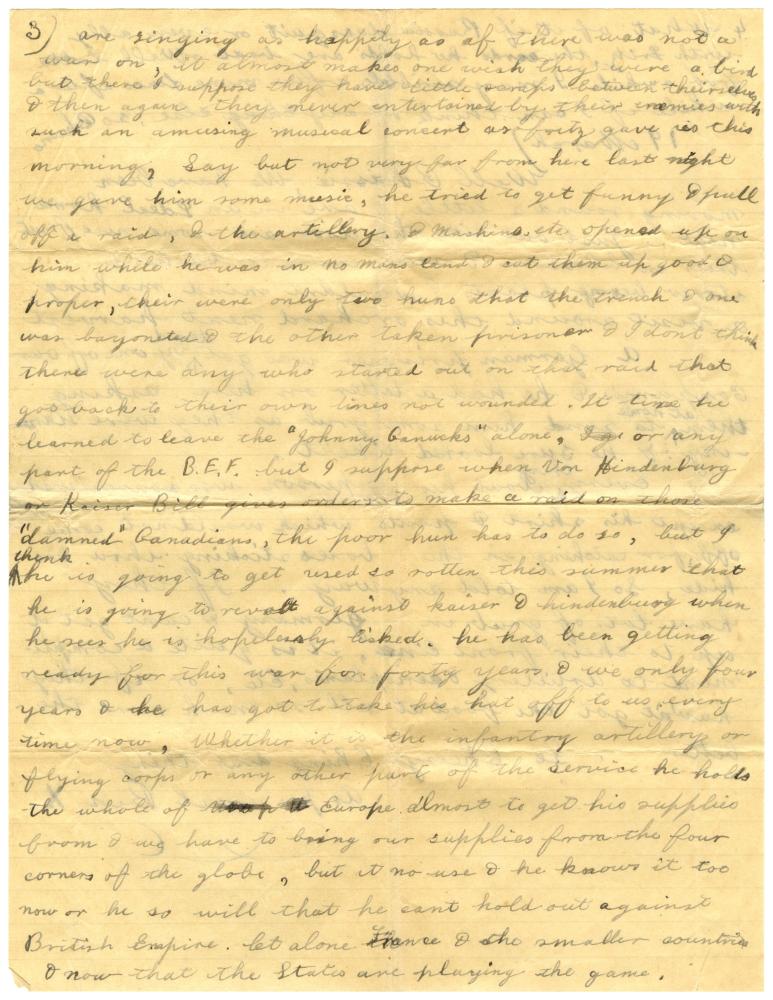 3) are singing as happily as af there was not a
war on, it almost makes one wish they were a bird
but there I suppose they have little scraps between theirselves
& then again they never entertained by their enemies with
such an amusing musical concert as fritz gave us this
morning, Say but not very far from here last night
we gave him some music, he tried to get funny & pull
off a raid, & the artillery. & Machine. etc opened up on
him while he was in no mans land & cut them up good &
proper, their were only two huns that the trench & one
was bayoneted & the other taken prisoner & I dont think
there were any who started out on that raid that
got back to their own lines not wounded. It time he
learned to leave the "Johnny Canucks" alone, or any
part of the B.E.F. but I suppose when Von Hindenburg
or Kaiser Bill gives orders to make a raid on those
"damned" Canadians, the poor hun has to do so, but I
think
he is going to get used so rotten this summer that
he is going to revolt against kaiser & hindenburg when
he sees he is hopelessly licked. he has been getting
ready for this war for forty years & we only four
years & he has got to take his hat off to us every
time now, Whether it is the infantry artillery or
flying corps or any other part of the service he holds
the whole of Europe almost to get his supplies
from & we have to bring our supplies from the four
corners of the globe, but it no use & he knows it too
now or he so will that he cant hold out against
British Empire. let alone France & the smaller countries
& now that the States are playing the game.